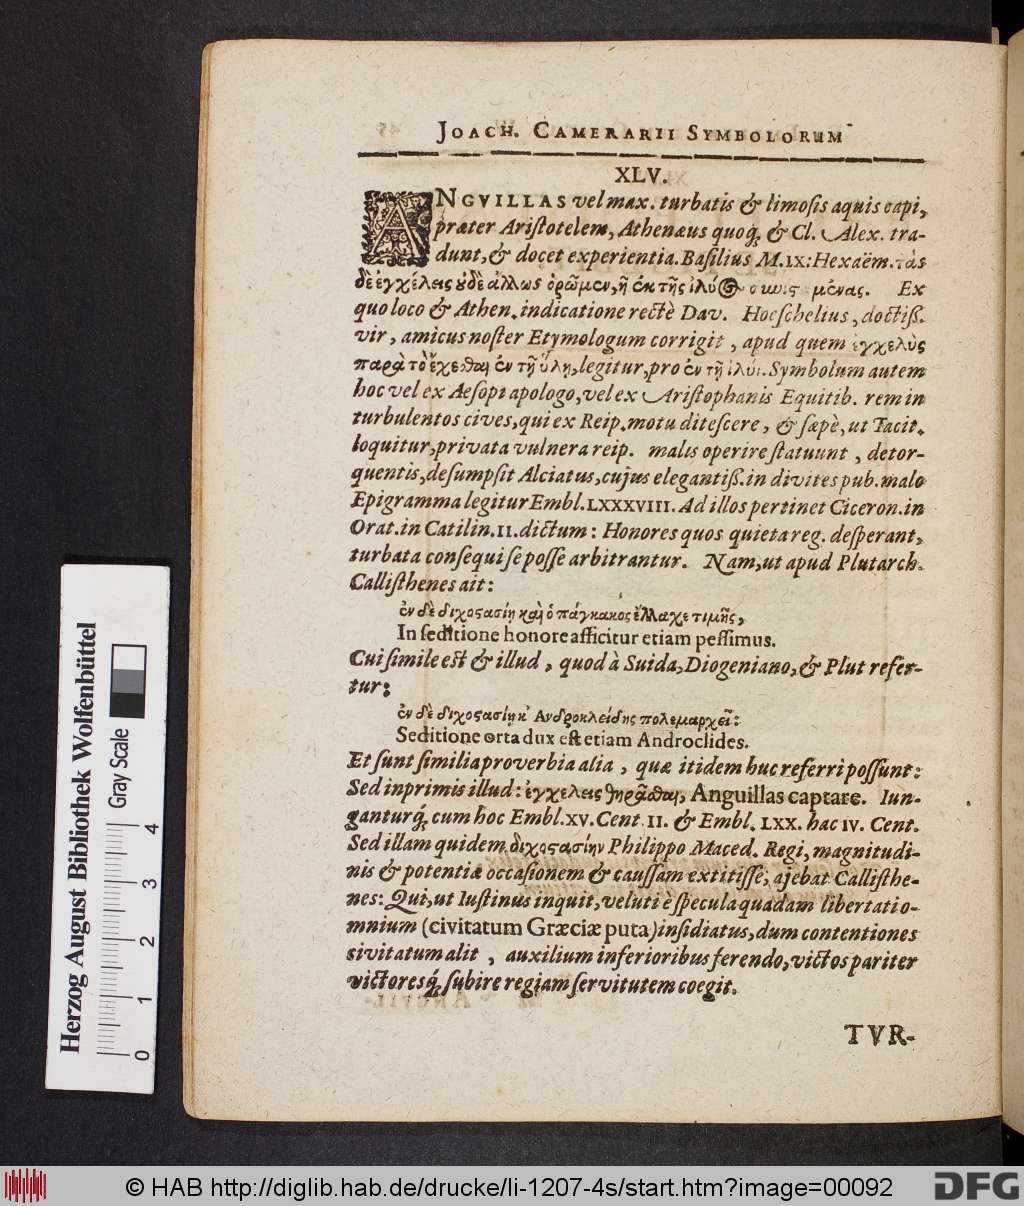 JOACH. CAMERARII SYMBOLORUM
XLV.
ANGVILLAS vel max. turbatis & limosis aquis capi,
præter Aristotelem, Athenæus quoq; & Cl. Alex. tra-
dunt, & docet experientia. Basilius M. IX: Hexaëm. τὰς
δὲ ἐγχέλεις ουδὲ ἄλλως ὁρῶμεν, ἢ ἐκ τῆς ἰλύος μένας. Ex
quo loco & Athen. indicatione rectè Dav. Hoeschelius, doctiss.
vir, amicus noster Etymologum corrigit, apud quem ἐγχελὺς
παρὰ τὸ ἔχεσθαι ἐν τῇ ὕλη, legitur, pro ἐν τῇ ἰλύι. Symbolum autem
hoc vel ex Aesopi apologo, vel ex Aristophanis Equitib. rem in
turbulentos cives, qui ex Reip. motu ditescere, & sæpè, ut Tacit.
loquitur, privata vulnera reip. malis operire statuunt, detor-
quentis, desumpsit Alciatus, cujus elegantiss. in divites pub. malo
Epigramma legitur Embl. LXXXVIII. Ad illos pertinet Ciceron. in
Orat. in Catilin. II. dictum: Honores quos quieta reg. desperant,
turbata consequi se posse arbitrantur. Nam, ut apud Plutarch.
Callisthenes ait:
ἐν δὲ διχοστασίῃ καὶ ὁ πάγκακος ἔλλαχε τιμῆς,
In seditione honore afficitur etiam pessimus.
Cui simile est & illud, quod à Suida, Diogeniano, & Plut refer-
tur:
ἐν δὲ διχοστασίῃ κ' Ανδροκλείδης πολεμαρχεῖ:
Seditione orta dux est etiam Androclides.
Et sunt similia proverbia alia, quæ itidem huc referri possunt:
Sed inprimis illud: ἐγχελεις θηρᾶσθαι, Anguillas captare. Iun-
ganturq; cum hoc Embl. XV. Cent. II. & Embl. LXX. hac IV. Cent.
Sed illam quidem διχοστασίην Philippo Maced. Regi, magnitudi-
nis & potentiæ occasionem & caussam extitisse, ajebat Callisthe-
nes: Qui, ut Iustinus inquit, veluti è specula quadam libertati o-
mnium (civitatum Græciæ puta) insidiatus, dum contentiones
civitatum alit, auxilium inferioribus ferendo, victos pariter
victoresq; subire regiam servitutem coegit.
TVR-
Herzog August Bibliothek Wolfenbüttel
Gray Scale
0 1 2 3 4
© HAB http://diglib.hab.de/drucke/li-1207-4s/start.htm?image=00092
DFG